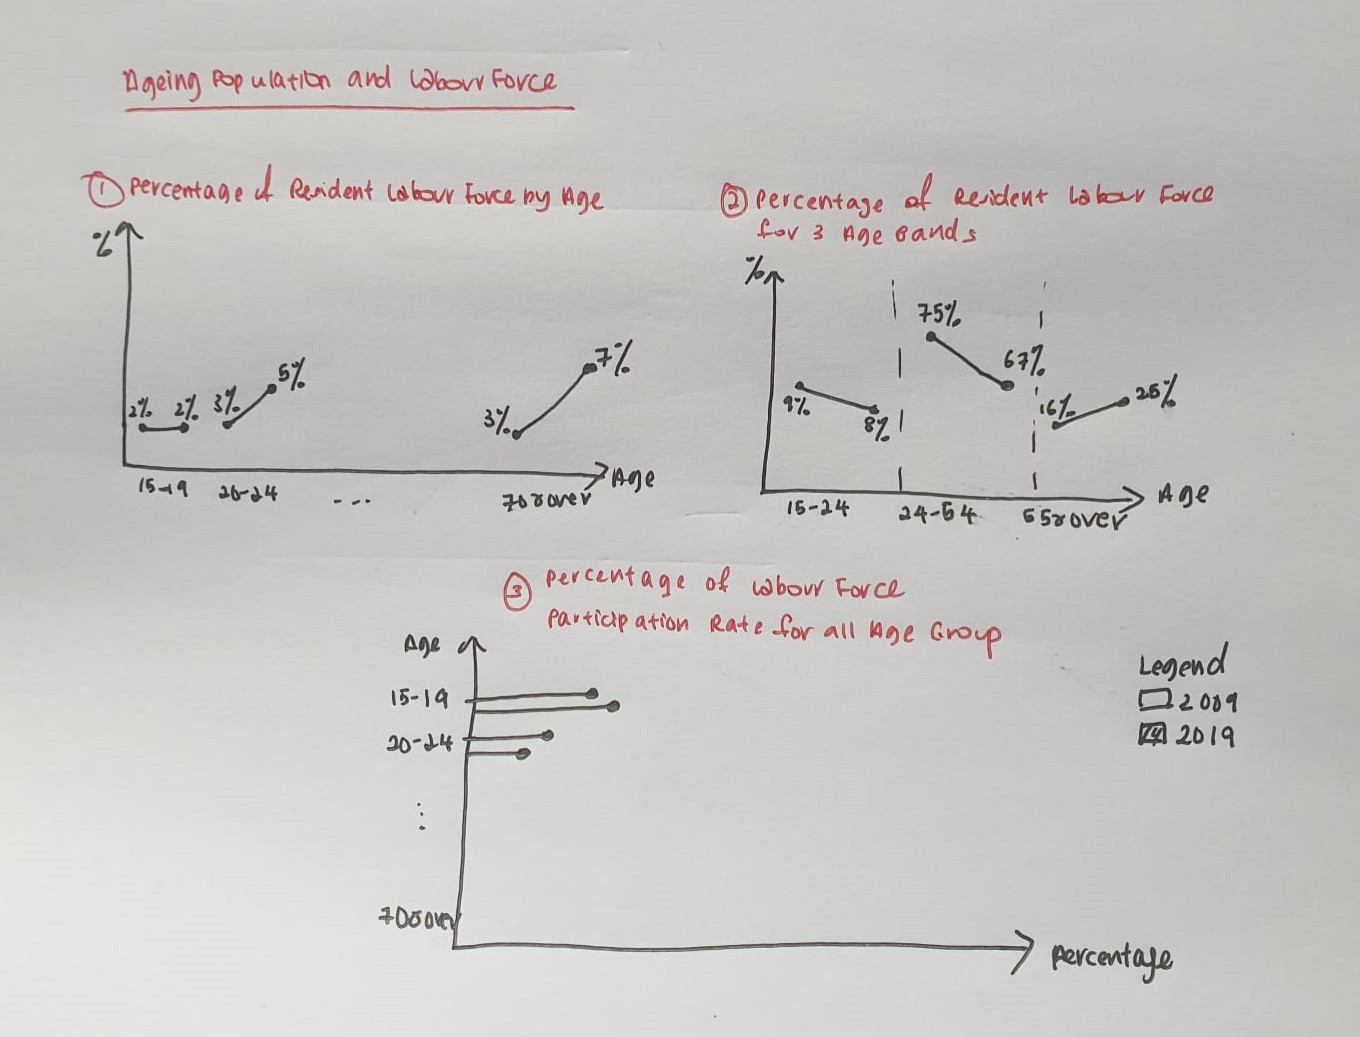 Ageing Population and Labour Force
① Percentage of Resident Labour Force by Age
%
2% 2% 3% 5%
3% 7%
15-19 20-24 ... 70 & over Age
② Percentage of Resident Labour Force
for 3 Age Bands
%
9% 8%
75% 67%
16% 25%
15-24 24-54 55 & over Age
③ Percentage of Labour Force
Participation Rate for all Age Group
Age
15-19
20-24
...
70 & over
Percentage
Legend
2009
2019